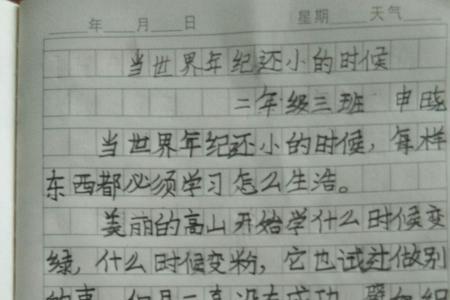 年 月 日 星期 天气
当世界年纪还小的时候
二年级三班 申晓
当世界年纪还小的时候，每样
东西都必须学习怎么生活。
美丽的高山开始学什么时候变
绿，什么时候变粉，它也试过做别
的事，但是一直没有成功